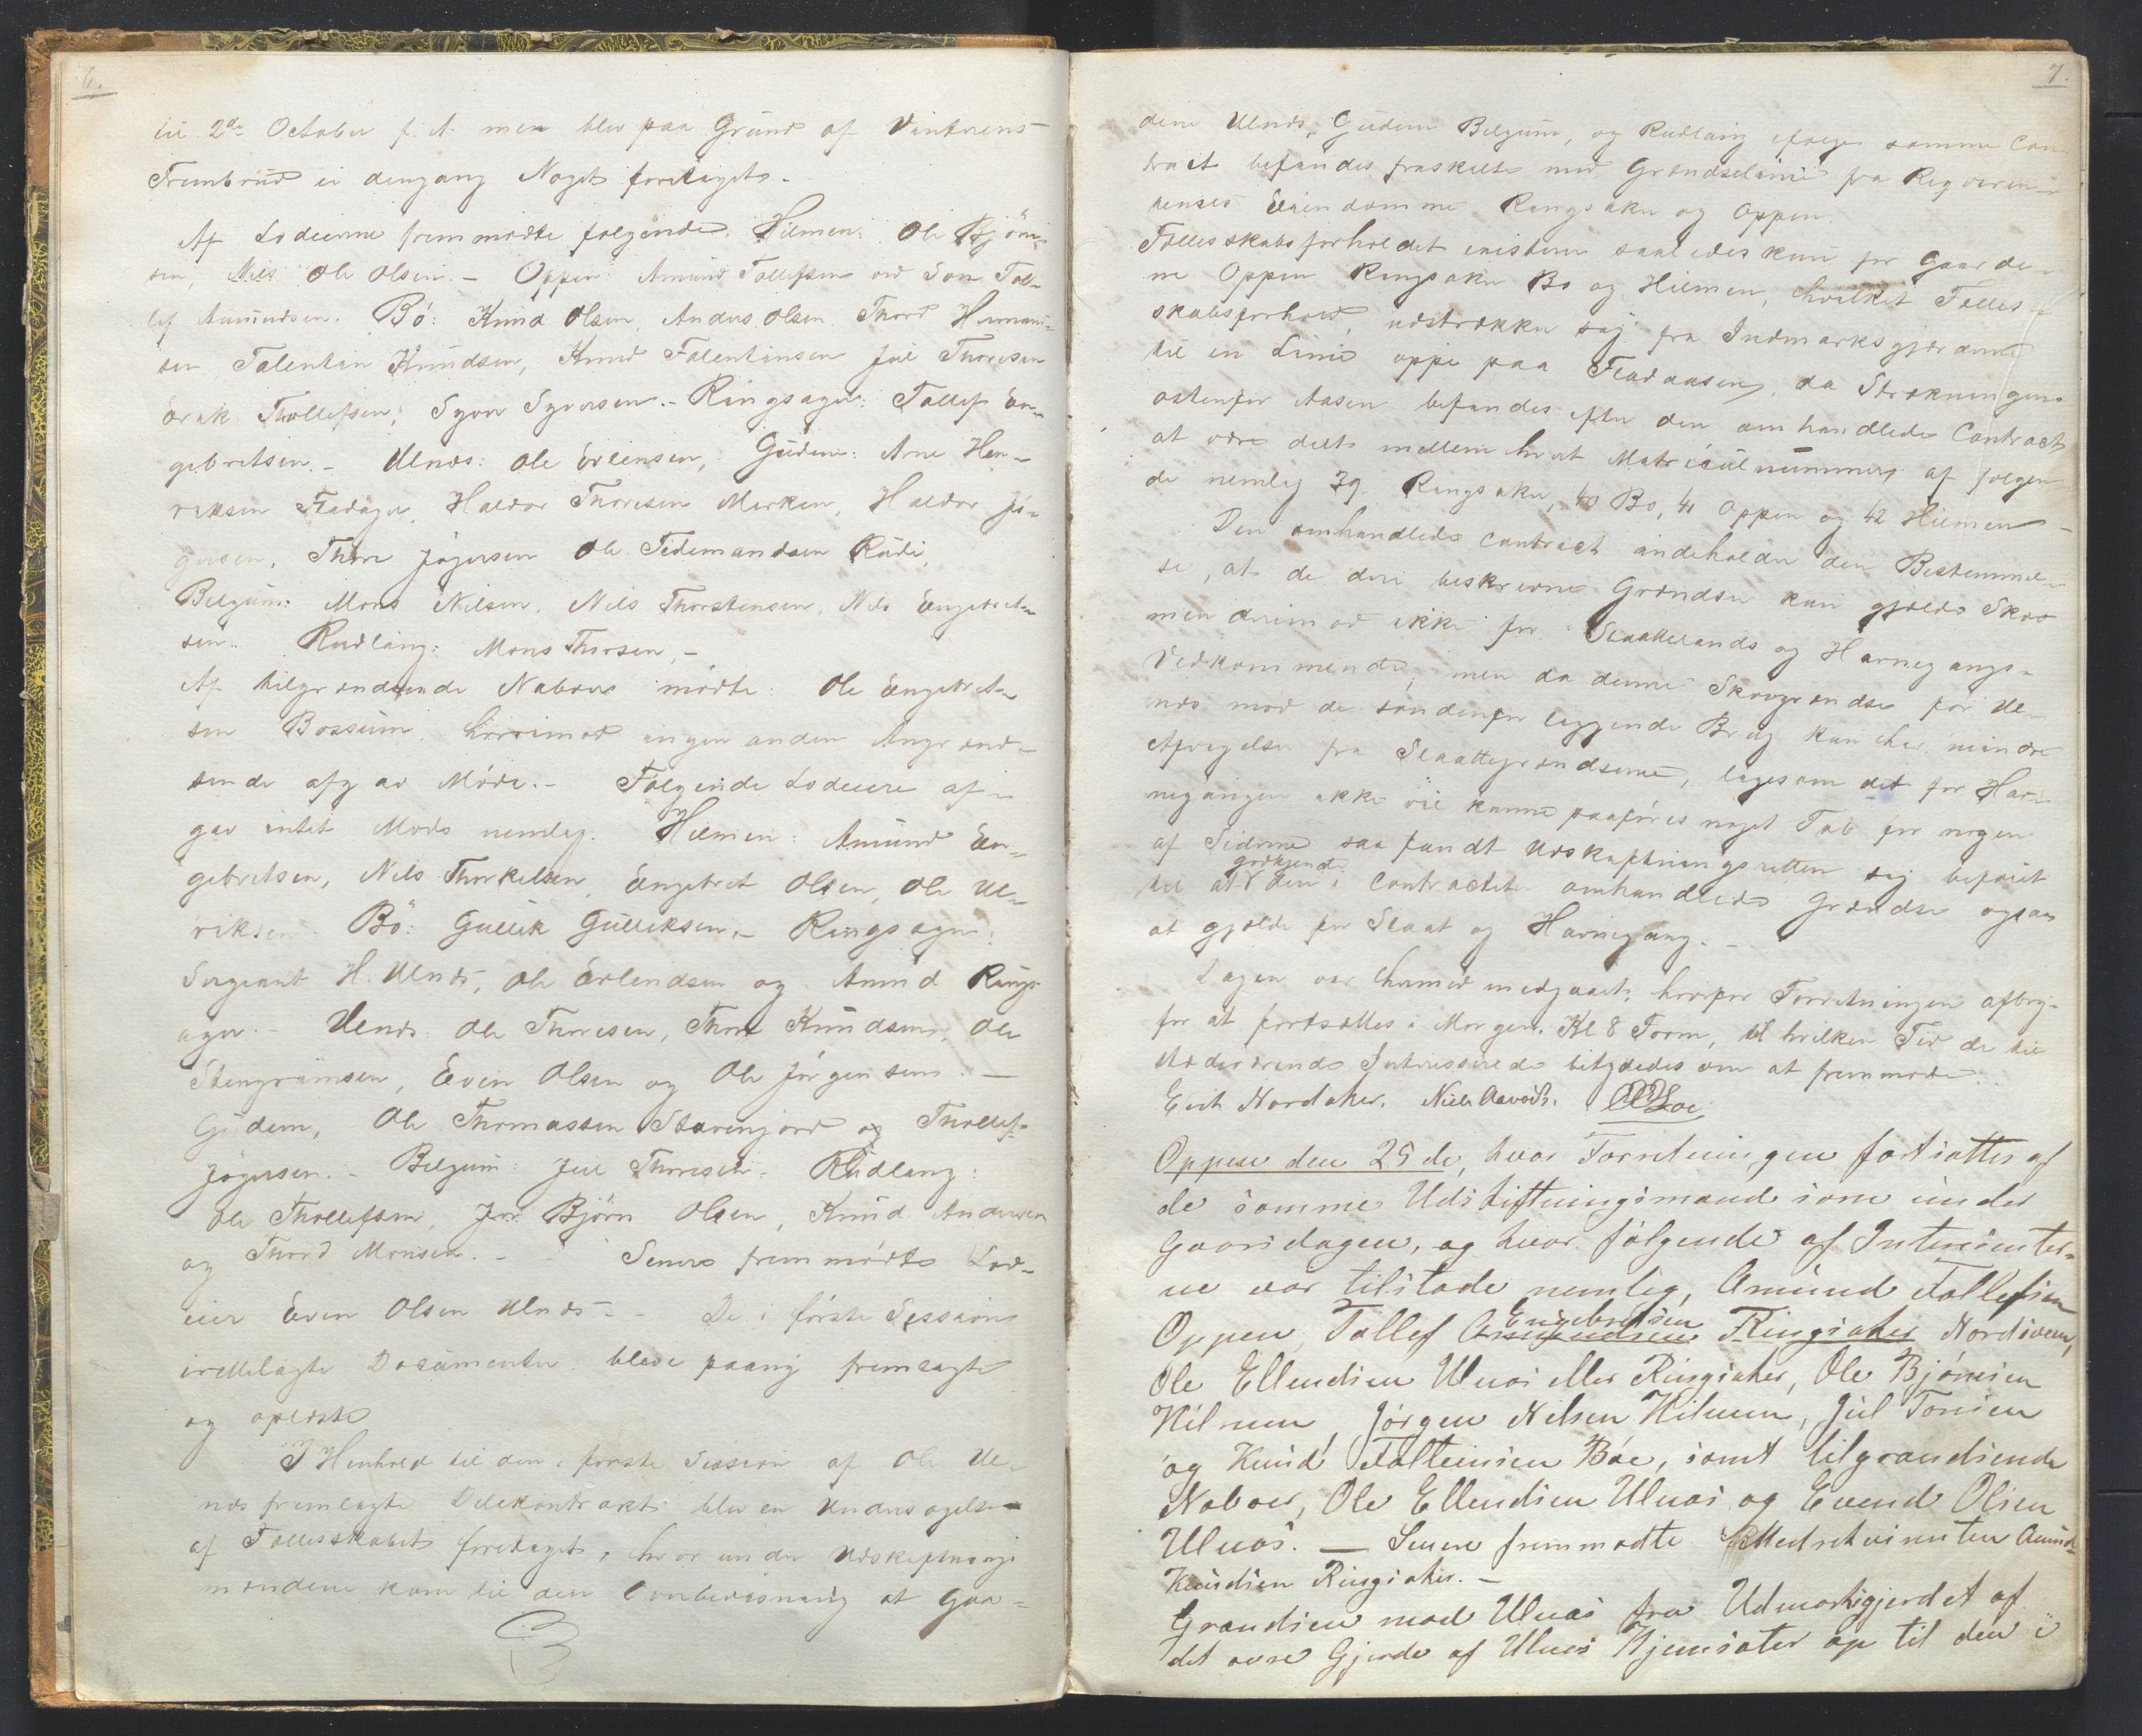 6.
til 2den October f. A. men blev paa Grund af Vinterens
Frembrud ei dengang Noget foretaget.
Af Lodeierne fremmødte følgende. Hilmen: Ole Bjørn-
sen, Nils Ole Olsen. – Oppen: Amund Tollefsen ved Søn Tol-
lef Amundsen. Bö: Knud Olsen, Anders Olsen Thord Herman-
sen Falentin Knudsen, Knud Falentinsen Jul Thoresen
Erik Thollefsen, Syver Syversen. – Ringsager: Tollef En-
gebretsen. – Ulnæs: Ole Erlensen, Gudem: Arne Hen-
riksen Fladager, Haldor Thoresen Marken, Haldor Jö-
gersen, Thore Jögersen Ole Tidemandsen Rudi,
Belgum: Mons Nilsen, Nils Thorstensen, Nils Engebret-
sen. Rudlang: Mons Thorsen, –
Af tilgrændsende Naboer mödte: Ole Engebret-
sen Bossum, hvorimod ingen anden Angrænd-
sende afgav Möde. – Fölgende Lodeiere af-
gav intet Møde nemlig. Hilmen: Amund En-
gebretsen, Nils Thorkelsen, Engebret Olsen, Ole Ul-
riksen. Bö: Gullik Gulliksen, – Ringsager:
Sergeant H. Ulnæs, Ole Erlendsen og Amund Rings-
ager. – Ulnæs: Ole Thoresen, Thore Knudsen, Ole
Stengrimsen, Even Olsen og Ole Jörgensen. –
Gudem, Ole Thomassen Starenjord og Thollef
Jögersen. – Belgum: Jul Thoresen. Rudlang:
Ole Thollefsen, Jon Björn Olsen, Knud Andersen
og Thord Monsen. – Senere fremmödte Lod-
eier Even Olsen Ulnæs. – De i förste Session
irettelagte Documenter bleve paany fremlagte
og oplæste
I Henhold til den i første Session af Ole Ul-
næs fremlagte Delekontrakt blev en Undersøgelse
af Fællesskabet foretaget, hvorunder Udskiftnings-
mændene kom til den Overbevisning at Gaa-
7.
dene Ulnæs, Gudem Belgum, og Rudlang ifølge samme Con-
tract befandes fraskilte med Grændselinie fra Reqviren-
tenses Eiendomme Ringsaker og Oppen.
Fællesskabsforholdet existerer saaledes kun for Gaarde-
ne Oppen Ringsaker Bø og Hilmen, hvilket Fælles-
skabsforhold, udstrækker sig fra Indmarksgjærderne
til en Linie oppe paa Fladaasen, da Strækningen
østenfor Aasen befandes efter den omhandlede Contract
at være delt mellem hvert Matriculnummer af følgen-
de nemlig 39 Ringsaker, 40 Bø, 41 Oppen og 42 Hilmen –
Den omhandlede Contract indeholder den Bestemmel-
se, at de deri beskrevne Grændser kun gjælde Skov
men derimod ikke for Slaatteland og Havnegangs-
Vedkommende, men da denne Skovgrændse for Ul-
næs mod de söndenfor liggende Brug kun har mindre
Afvigelser fra Slaattegrændserne, ligesom det for Hav-
negangen ikke vil kunne paaföres noget Tab for nogen
af Siderne saa fandt Udskiftningsretten sig beföiet
til at godkjende den i Contracten omhandlede Grændse ogsaa
at gjælde for Slaat og Havnegang. –
Dagen var hermed medgaaet, hvorfor Forretningen afbry-
for at fortsættes i Morgen. Kl 8 Form, til hvilken Tid de til
stedeværende Interesserede tilsagdes om at fremmøde.
Erik Nordaker. Niels Aavods.
Oppen den 25de, hvor Forretningen fortsattes af
de samme Udskiftningsmænd som under
Gaarsdagen, og hvor følgende af Interessenter-
ne var tilstæde nemlig, Amund Tollefsen
Oppen, Tollef Amundsen Engebretsen Ringsaker Nordsveen,
Ole Ellendsen Ulnæs eller Ringsaker, Ole Bjørnsen
Hilmen, Jørgen Nilsen Hilmen, Jul Torsen
og Knud Faltinsen Bøe, samt tilgrændsende
Naboer, Ole Ellendsen Ulnæs og Evend Olsen
Ulnæs. – Senere fremmødte Medrekvirenten Amund
Knudsen Ringsaker. –
Grændsen mod Ulnæs fra Udmarksgjerdet af
det øvre Gjerde af Ulnæs Hjemsæter op til den i